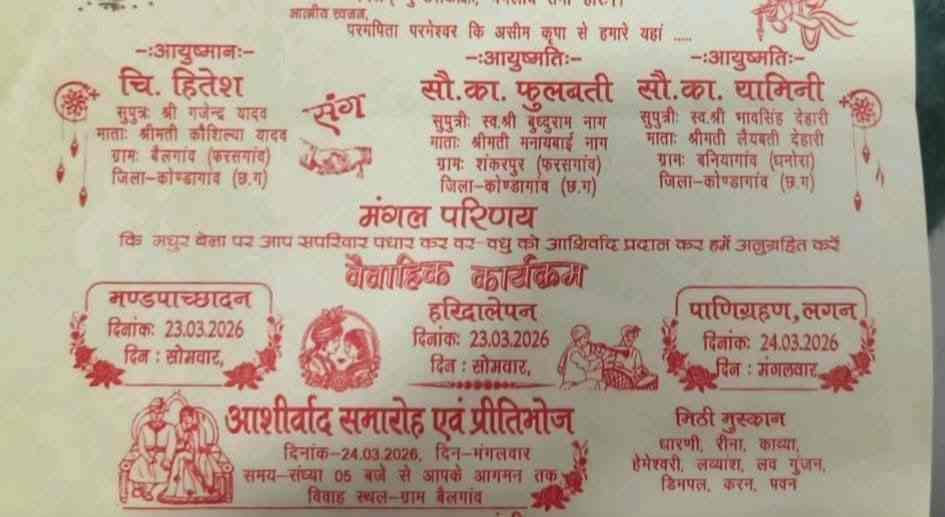 आत्मीय स्वजन,
परमपिता परमेश्वर कि असीम कृपा से हमारे यहां .....
-:आयुष्मान:-
चि. हितेश
सुपुत्रः श्री गजेन्द्र यादव
माताः श्रीमती कौशिल्या यादव
ग्रामः बैलगांव (फरसगांव)
जिला-कोण्डागांव (छ.ग)
संग
-:आयुष्मतिः-
सौ.का. फुलबती
सुपुत्रीः स्व.श्री बुध्दुराम नाग
माताः श्रीमती मनायबाई नाग
ग्रामः शंकरपुर (फरसगांव)
जिला-कोण्डागांव (छ.ग)
-:आयुष्मतिः-
सौ.का. यामिनी
सुपुत्रीः स्व.श्री भावसिंह देहारी
माताः श्रीमती लैयबती देहारी
ग्रामः बनियागांव (धनोरा)
जिला-कोण्डागांव (छ.ग)
मंगल परिणय
कि मधुर बेला पर आप सपरिवार पधार कर वर-वधु को आशिर्वाद प्रदान कर हमें अनुग्रहित करें
वैवाहिक कार्यक्रम
मण्डपाच्छादन
दिनांकः 23.03.2026
दिन : सोमवार,
हरिद्रालेपन
दिनांकः 23.03.2026
दिन : सोमवार,
पाणिग्रहण,लगन
दिनांकः 24.03.2026
दिन : मंगलवार
आशीर्वाद समारोह एवं प्रीतिभोज
दिनांक-24.03.2026, दिन-मंगलवार
समय-संध्या 05 बजे से आपके आगमन तक
विवाह स्थल-ग्राम बैलगांव
मिठी मुस्कान
धारणी, रीना, काव्या,
हेमेश्वरी, लव्यांश, लव गुंजन,
डिमपल, करन, पवन